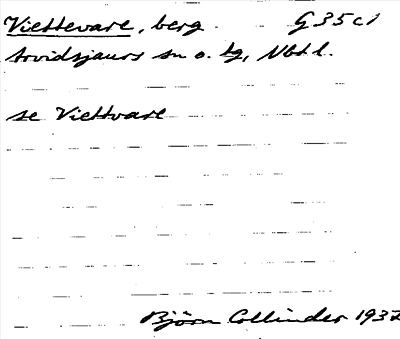 Viettevare, berg. G 35 c 1
Arvidsjaurs sn o. tg, Nbtl.
se Viettvare
Björn Collinder 1937